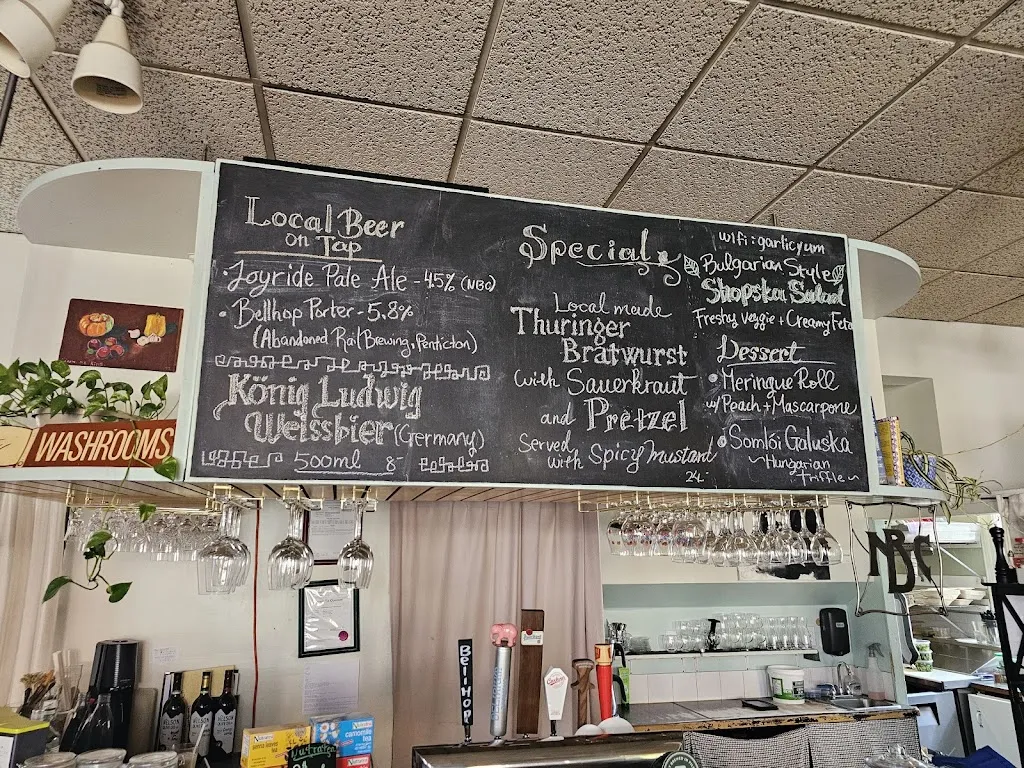 Local Beer
on Tap
• Joyride Pale Ale - 4.5% (NBC)
• Bellhop Porter - 5.8%
(Abandoned Rail Brewing, Penticton)
König Ludwig
Weissbier (Germany)
500ml 8-
Specials
Local made
Thuringer
Bratwurst
with Sauerkraut
and Pretzel
Served
with Spicy Mustard
24-
wifi: garlicyum
Bulgarian Style
Shopska Salad
Freshy Veggie + Creamy Feta
Dessert
• Meringue Roll
w/ Peach + Mascarpone
• Somloi Galuska
~Hungarian
trifle~
WASHROOMS
NBC
BellHop